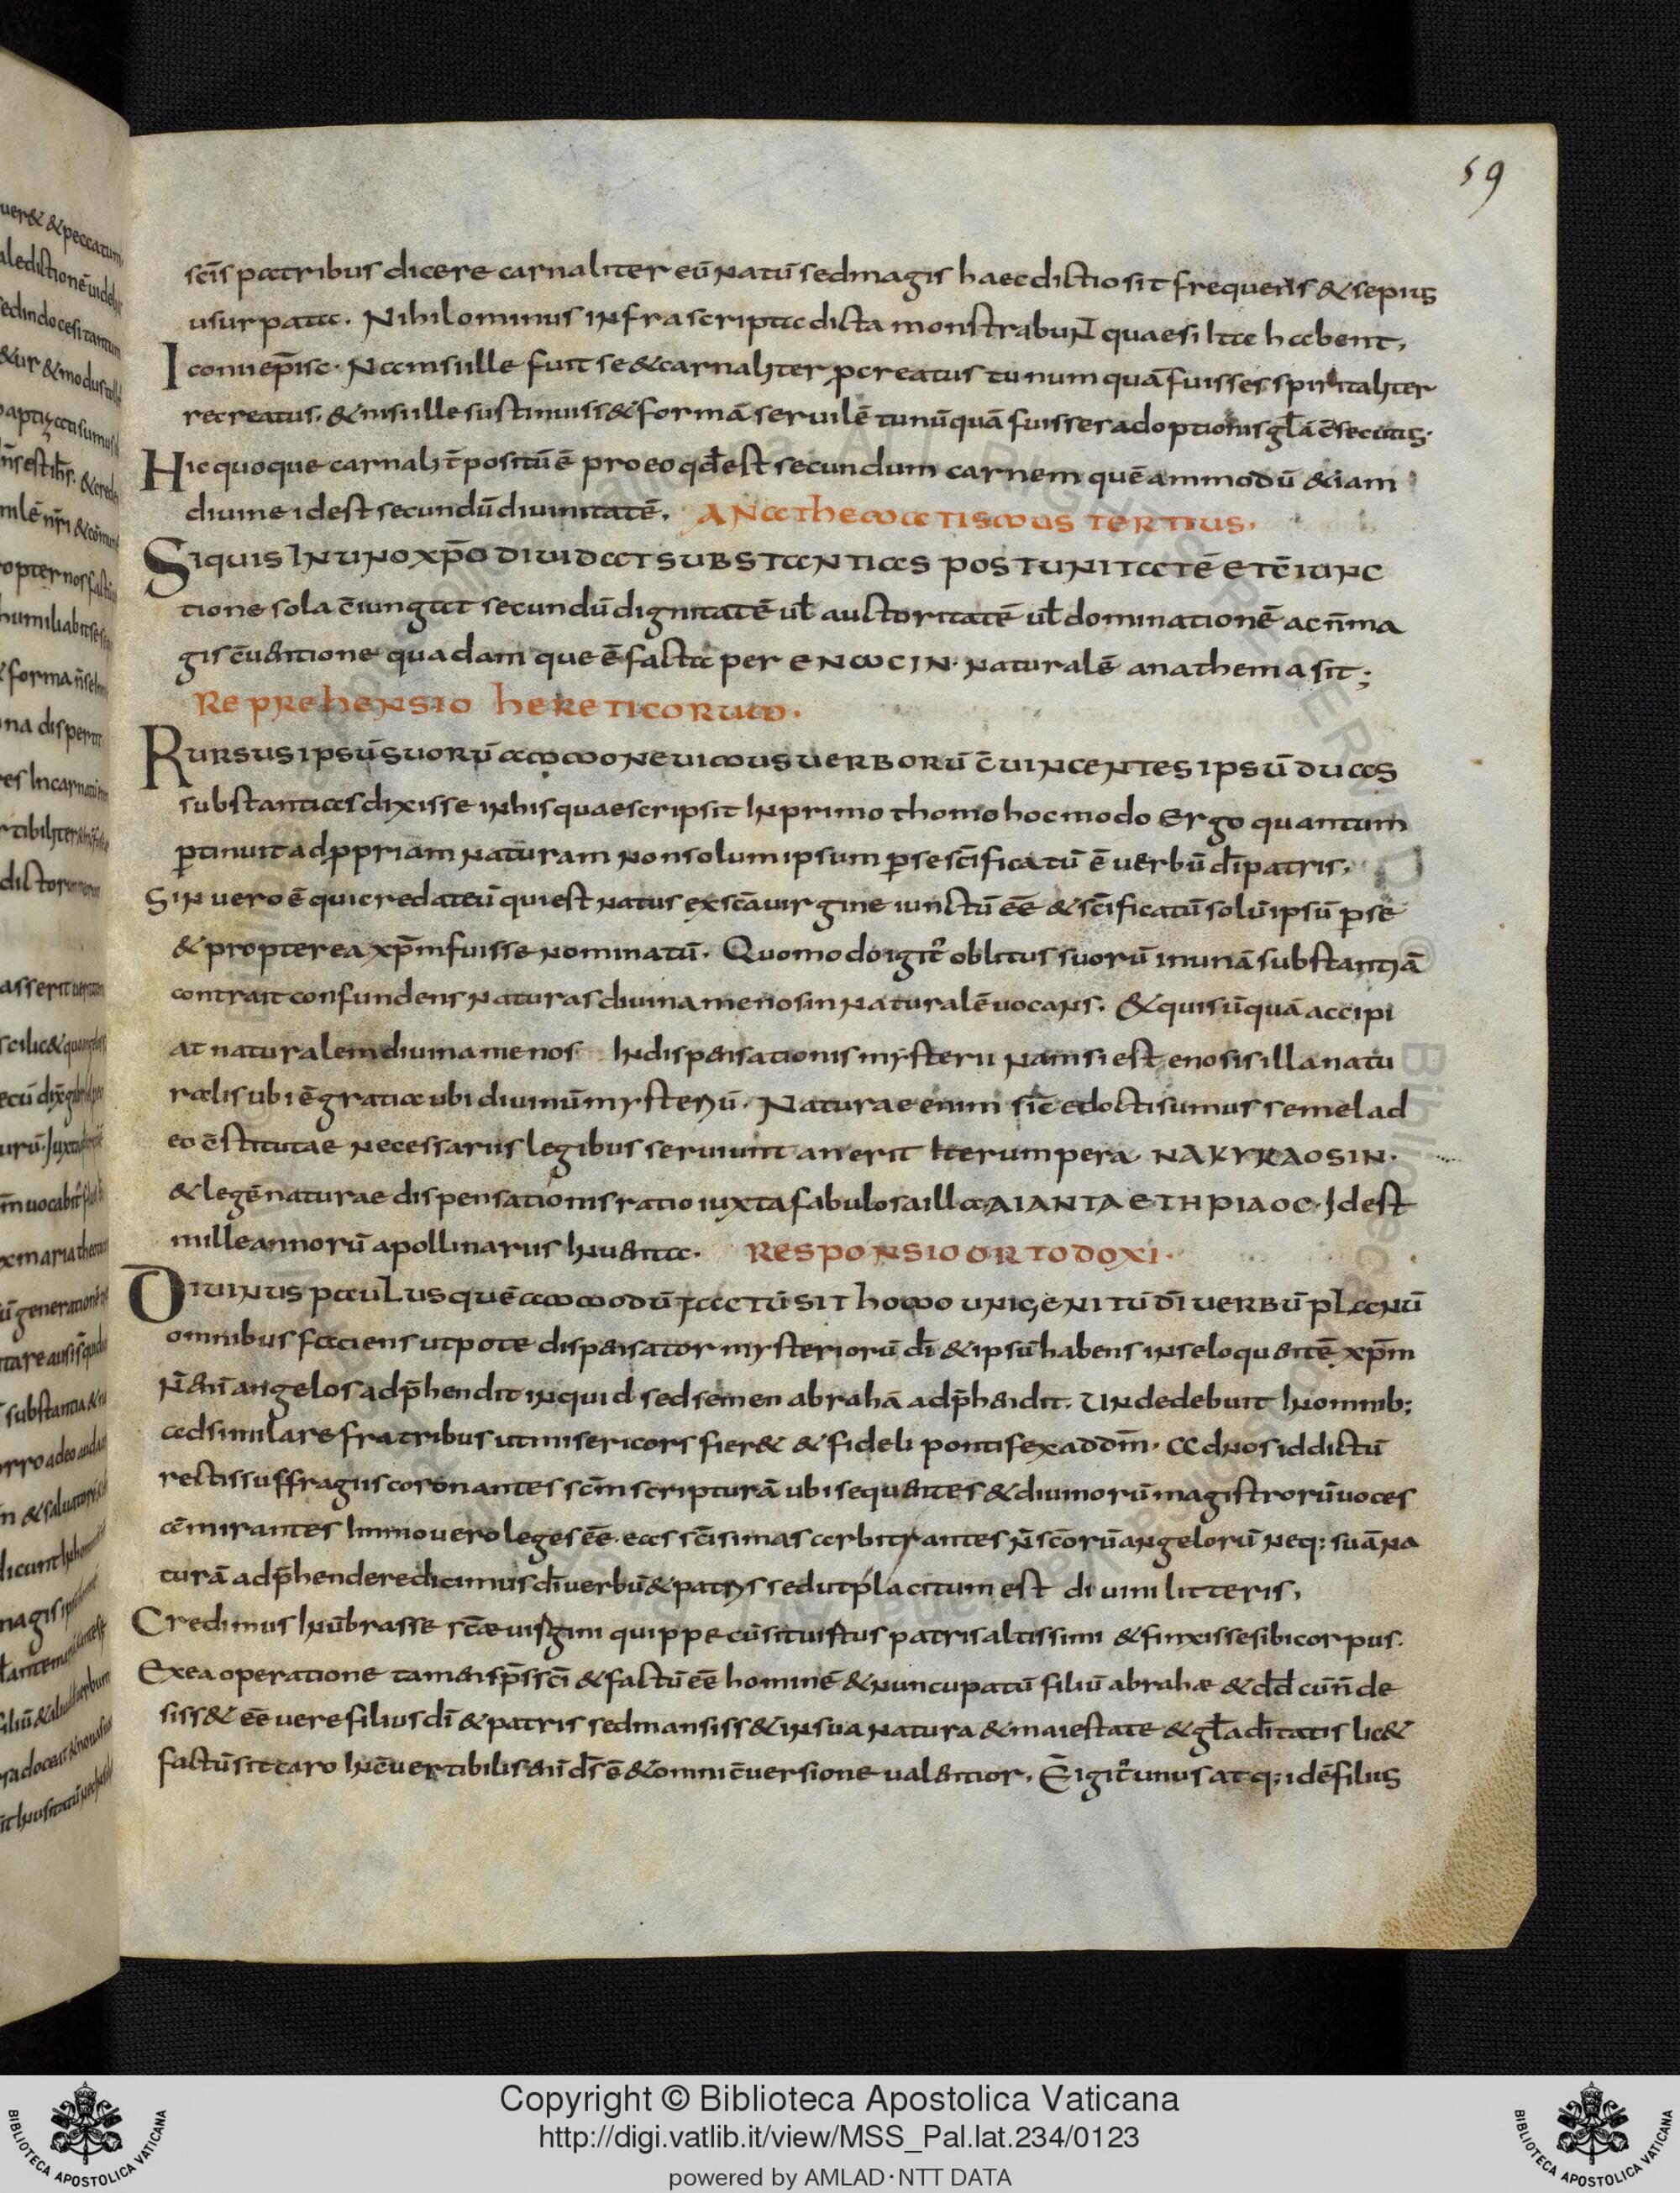 59
scīs patribus dicere carnaliter eū natū sed magis haec dictio sit frequens & sepius
usurpata. Nihilominus infra scripta dicta monstrabunt quae si ita habent,
Iconii ep̄isc. Nam si ille fuit se & carnaliter ꝓcreatus tu numquā fuisses spiritaliter
recreatus. & nisi ille sustinuiss& formā seruilē tu nūquā fuisses adoptionis gl̄ā c̄secutus.
Hic quoque carnalit̄ positū ē pro eo qd̄ est secundum carnem quēammodū &iam
diuine id est secundū diuinitatē. ANATHEMATISMUS TERTIUS.
Siquis IN UNO XP̄O DIUIDAT SUBSTANTIAS POST UNITATĒ ET C̄IUNC
tione sola c̄iungat secundū dignitatē ul̄ auctoritatē ul̄ dominationē ac n̄ ma
gis c̄uentione quadam que ē facta per ENωCIN. naturalē anathema sit;
REPREHENSIO HERETICORUM.
RURSUS IPSŪ SUORŪ AMMONEUIMUS UERBORŪ C̄UINCENTES IPSŪ DUAS
substantias dixisse in his quae scripsit In primo thomo hoc modo Ergo quantum
ꝑtinuit ad ꝓpriam naturam non solum ipsum ꝑ se sc̄ificatū ē uerbū dī patris.
Sin uero ē qui credat eū qui est natus ex scā uirgine iunctū ēē & sc̄ificatū solū ipsū ꝑ se
& propterea xp̄m fuisse nominatū. Quomodo igit̄ oblitus suorū in unā substantiā
contrait confundens naturas diuinam enosin naturalē uocans. & quis ūquā accipi
at naturalem diuinam enos In dispensationis mysterii nam si est enosis illa natu
ralis ubi ē gratia ubi diuinū mysteriū. Naturae enim sic edocti sumus semel a dō
eo c̄stitutae necessariis legibus seruiunt an erit Iterum pera NAKYKAOSIN.
& legē naturae dispensationis ratio iuxta fabulosa illa AIANTAETHPIAOC. Id est
mille annorū apollinarius Inuenta. RESPONSIO ORTODOXI.
DIUINUS PAULUS QUĒAMMODŪ FACTŪ SIT HOMO UNIGENITŪ DĪ UERBŪ PLANŪ
omnibus faciens utpote dispensator mysteriorū dī & ipsū habens in se loquentē xp̄m
N̄ enī angelos adp̄hendit inquid sed semen abrahā adp̄hendit. Unde debuit In omnib;
adsimilare fratribus ut misericors fier& & fideli pontifex ad dm̄. Ad nos id dictū
rectis suffragiis coronantes scm̄ scripturā ubi sequentes & diuinorū magistrorū uoces
ammirantes Immo uero leges ēē eas scīsimas arbitrantes n̄ scōrū angelorū neq; suā na
turā adp̄hendere dicimus dī uerbū & patris sed ut placitum est diuini litteris.
Credimus Inūbrasse scæ uirgini quippe cū sit uirtus patris altissimi & finxisse sibi corpus.
Ex ea operatione tamen sp̄s scī & factū ēē hominē & nuncupatū filiū abrahæ & dd̄ cū n̄ de
siss& ēē uere filius dī & patris sed mansiss& in sua natura & maiestate & gl̄a dītatis lic&
factū sit caro Inc̄uertibilis enī ds̄ ē & omni c̄uersione ualentior. Ē igit̄ unus atq; idē filius
Copyright © Biblioteca Apostolica Vaticana
http://digi.vatlib.it/view/MSS_Pal.lat.234/0123
powered by AMLAD·NTT DATA
BIBLIOTECA APOSTOLICA VATICANA
BIBLIOTECA APOSTOLICA VATICANA